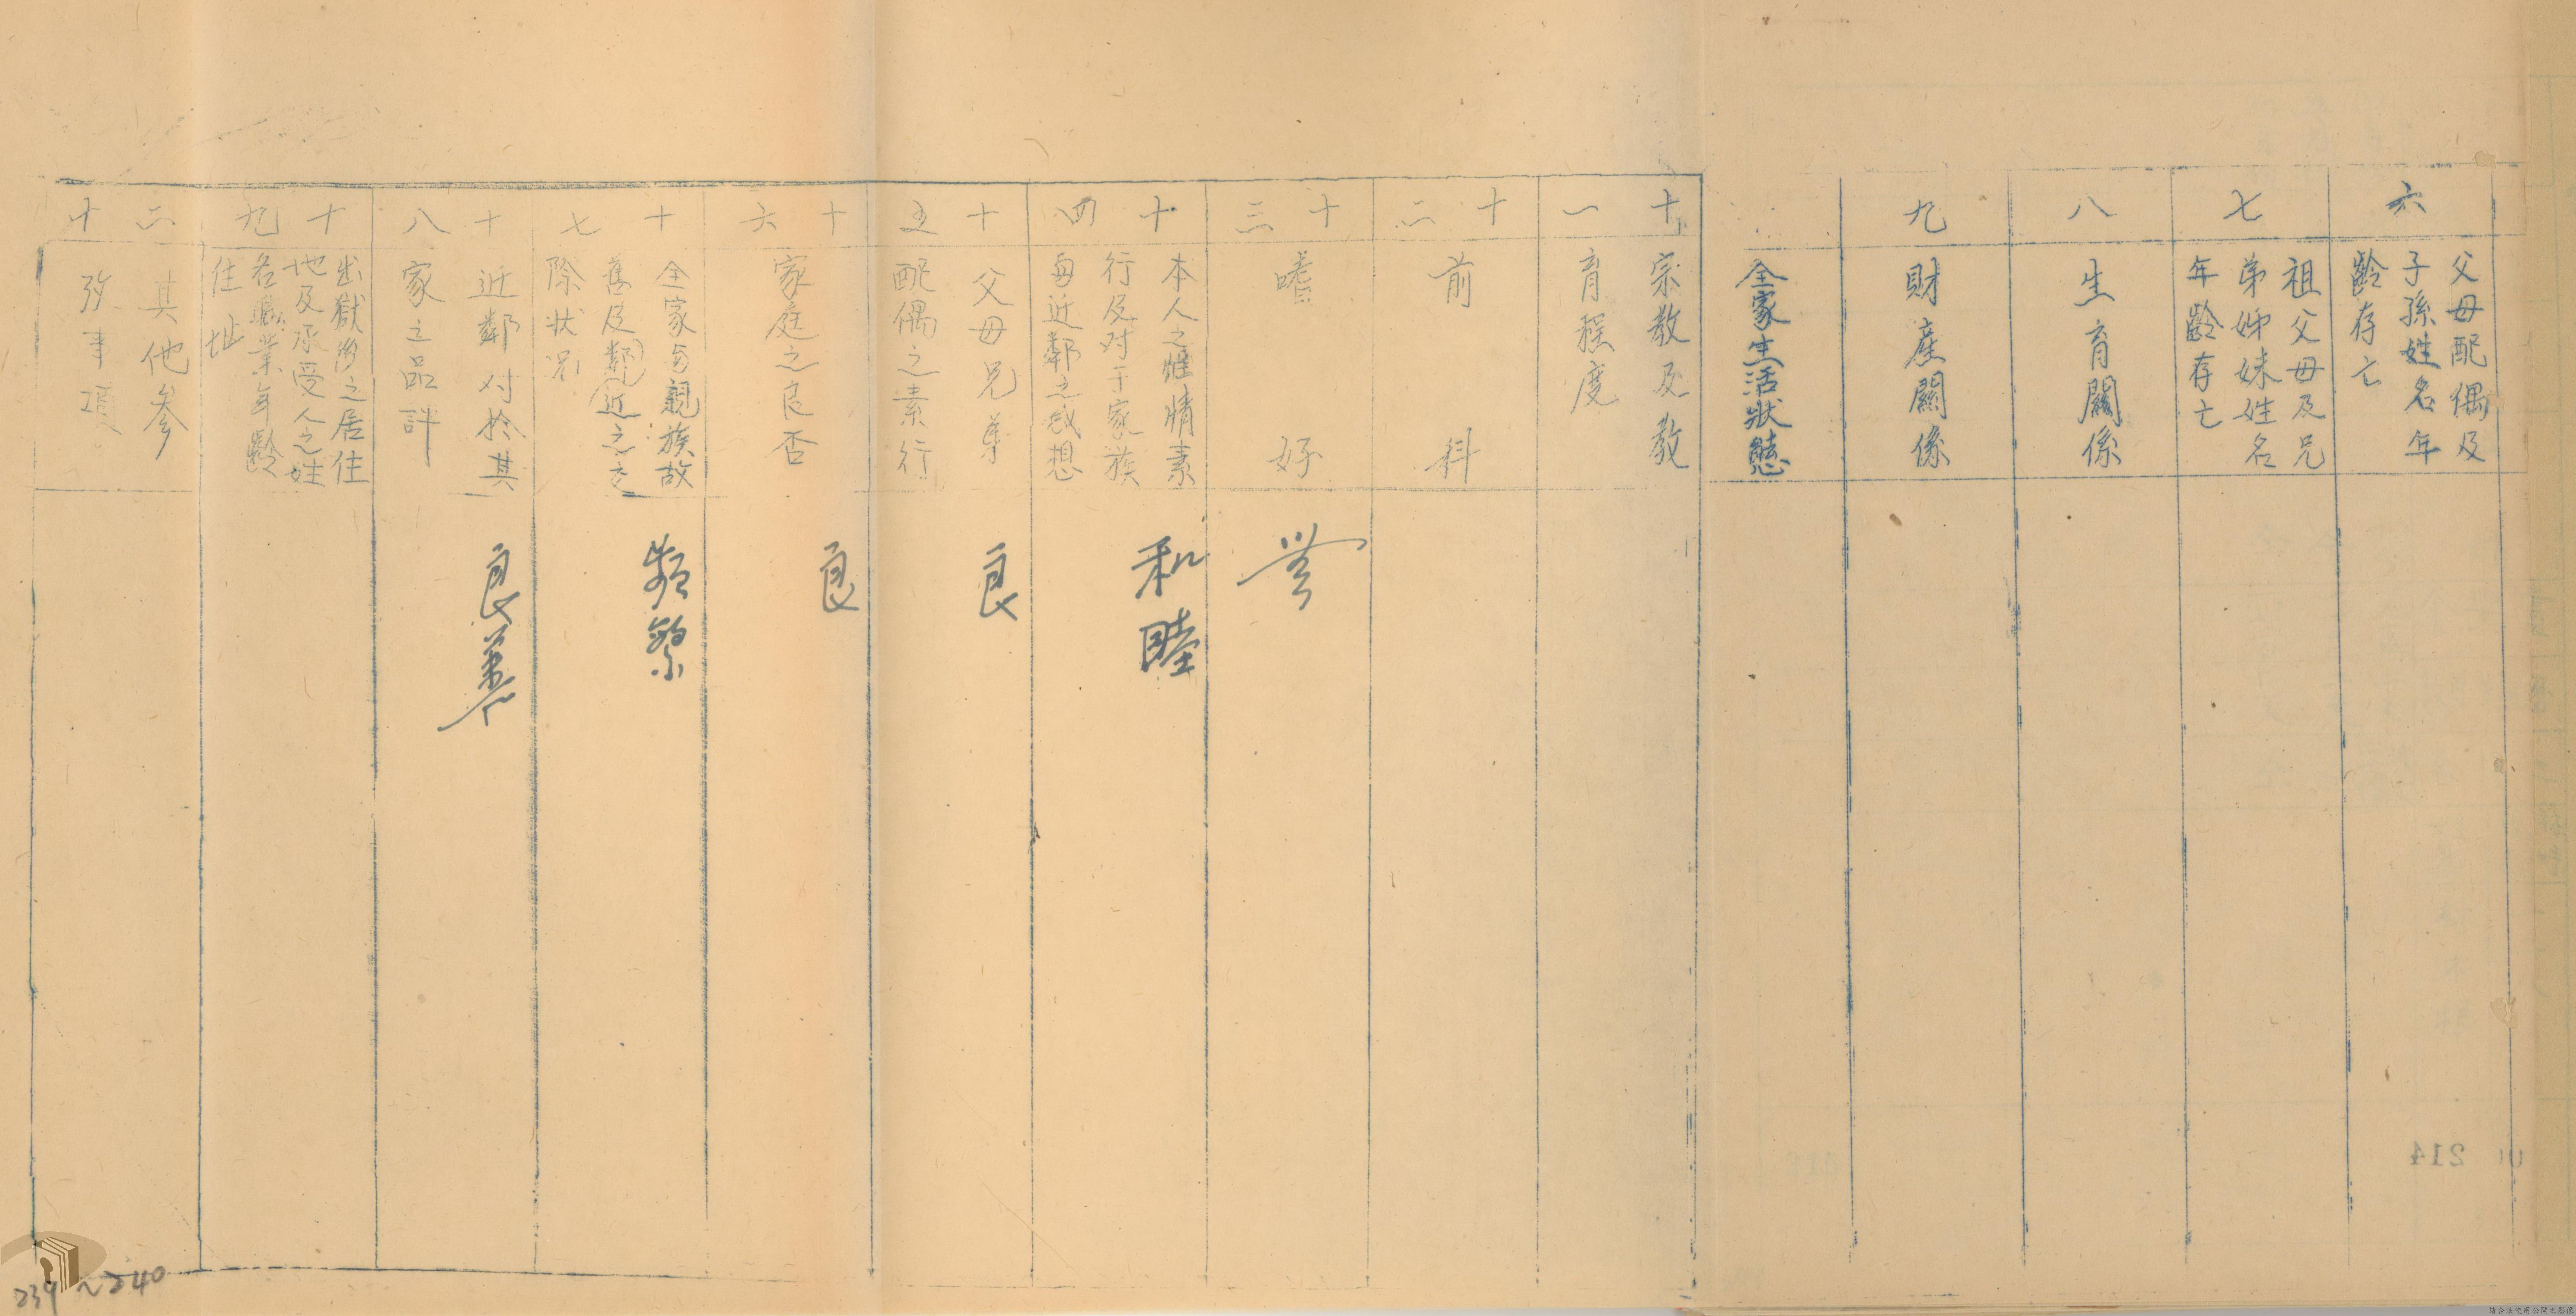 六
父母配偶及
子孫姓名年
齡存亡
七
祖父母及兄
弟姊妹姓名
年齡存亡
八
生育關係
九
財產關係
全家生活狀態
十一
宗教及教
育程度
十二
前科
十三
嗜好
無
十四
本人之性情素
行及对于家族
每近鄰之感想
和睦
十五
父母兄弟
配偶之素行
良
十六
家庭之良否
良
十七
全家与親族故
舊及鄰近之交
際状况
頻繁
十八
近鄰对於其
家之品評
良善
十九
出獄後之居住
地及承受人之姓
名職業年齡
住址
二十
其他参
攷事項
214
239~240
請合法使用公開之影像